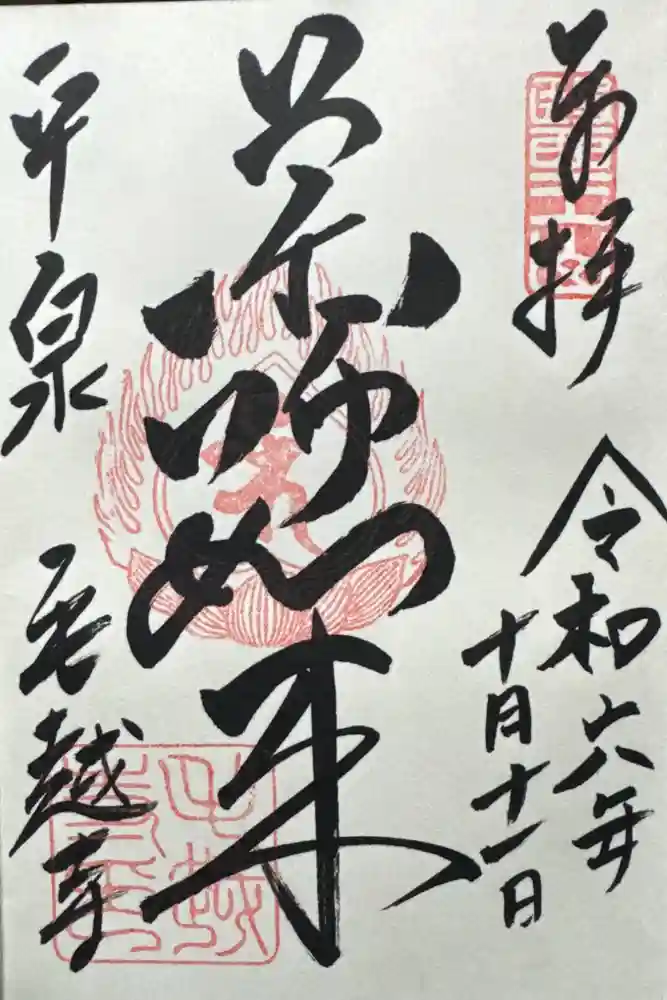 奉拝
令和六年
十月十一日
薬師如来
平泉
毛越寺